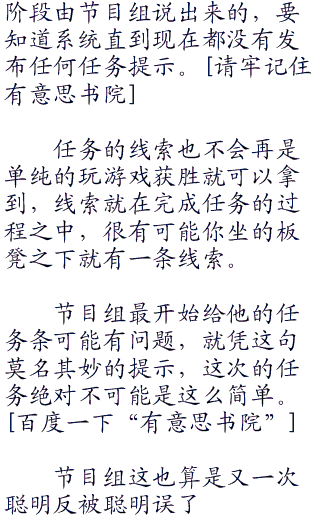 阶段由节目组说出来的，要
知道系统直到现在都没有发
布任何任务提示。[请牢记住
有意思书院]
任务的线索也不会再是
单纯的玩游戏获胜就可以拿
到，线索就在完成任务的过
程之中，很有可能你坐的板
凳之下就有一条线索。
节目组最开始给他的任
务条可能有问题，就凭这句
莫名其妙的提示，这次的任
务绝对不可能是这么简单。
[百度一下“有意思书院”]
节目组这也算是又一次
聪明反被聪明误了